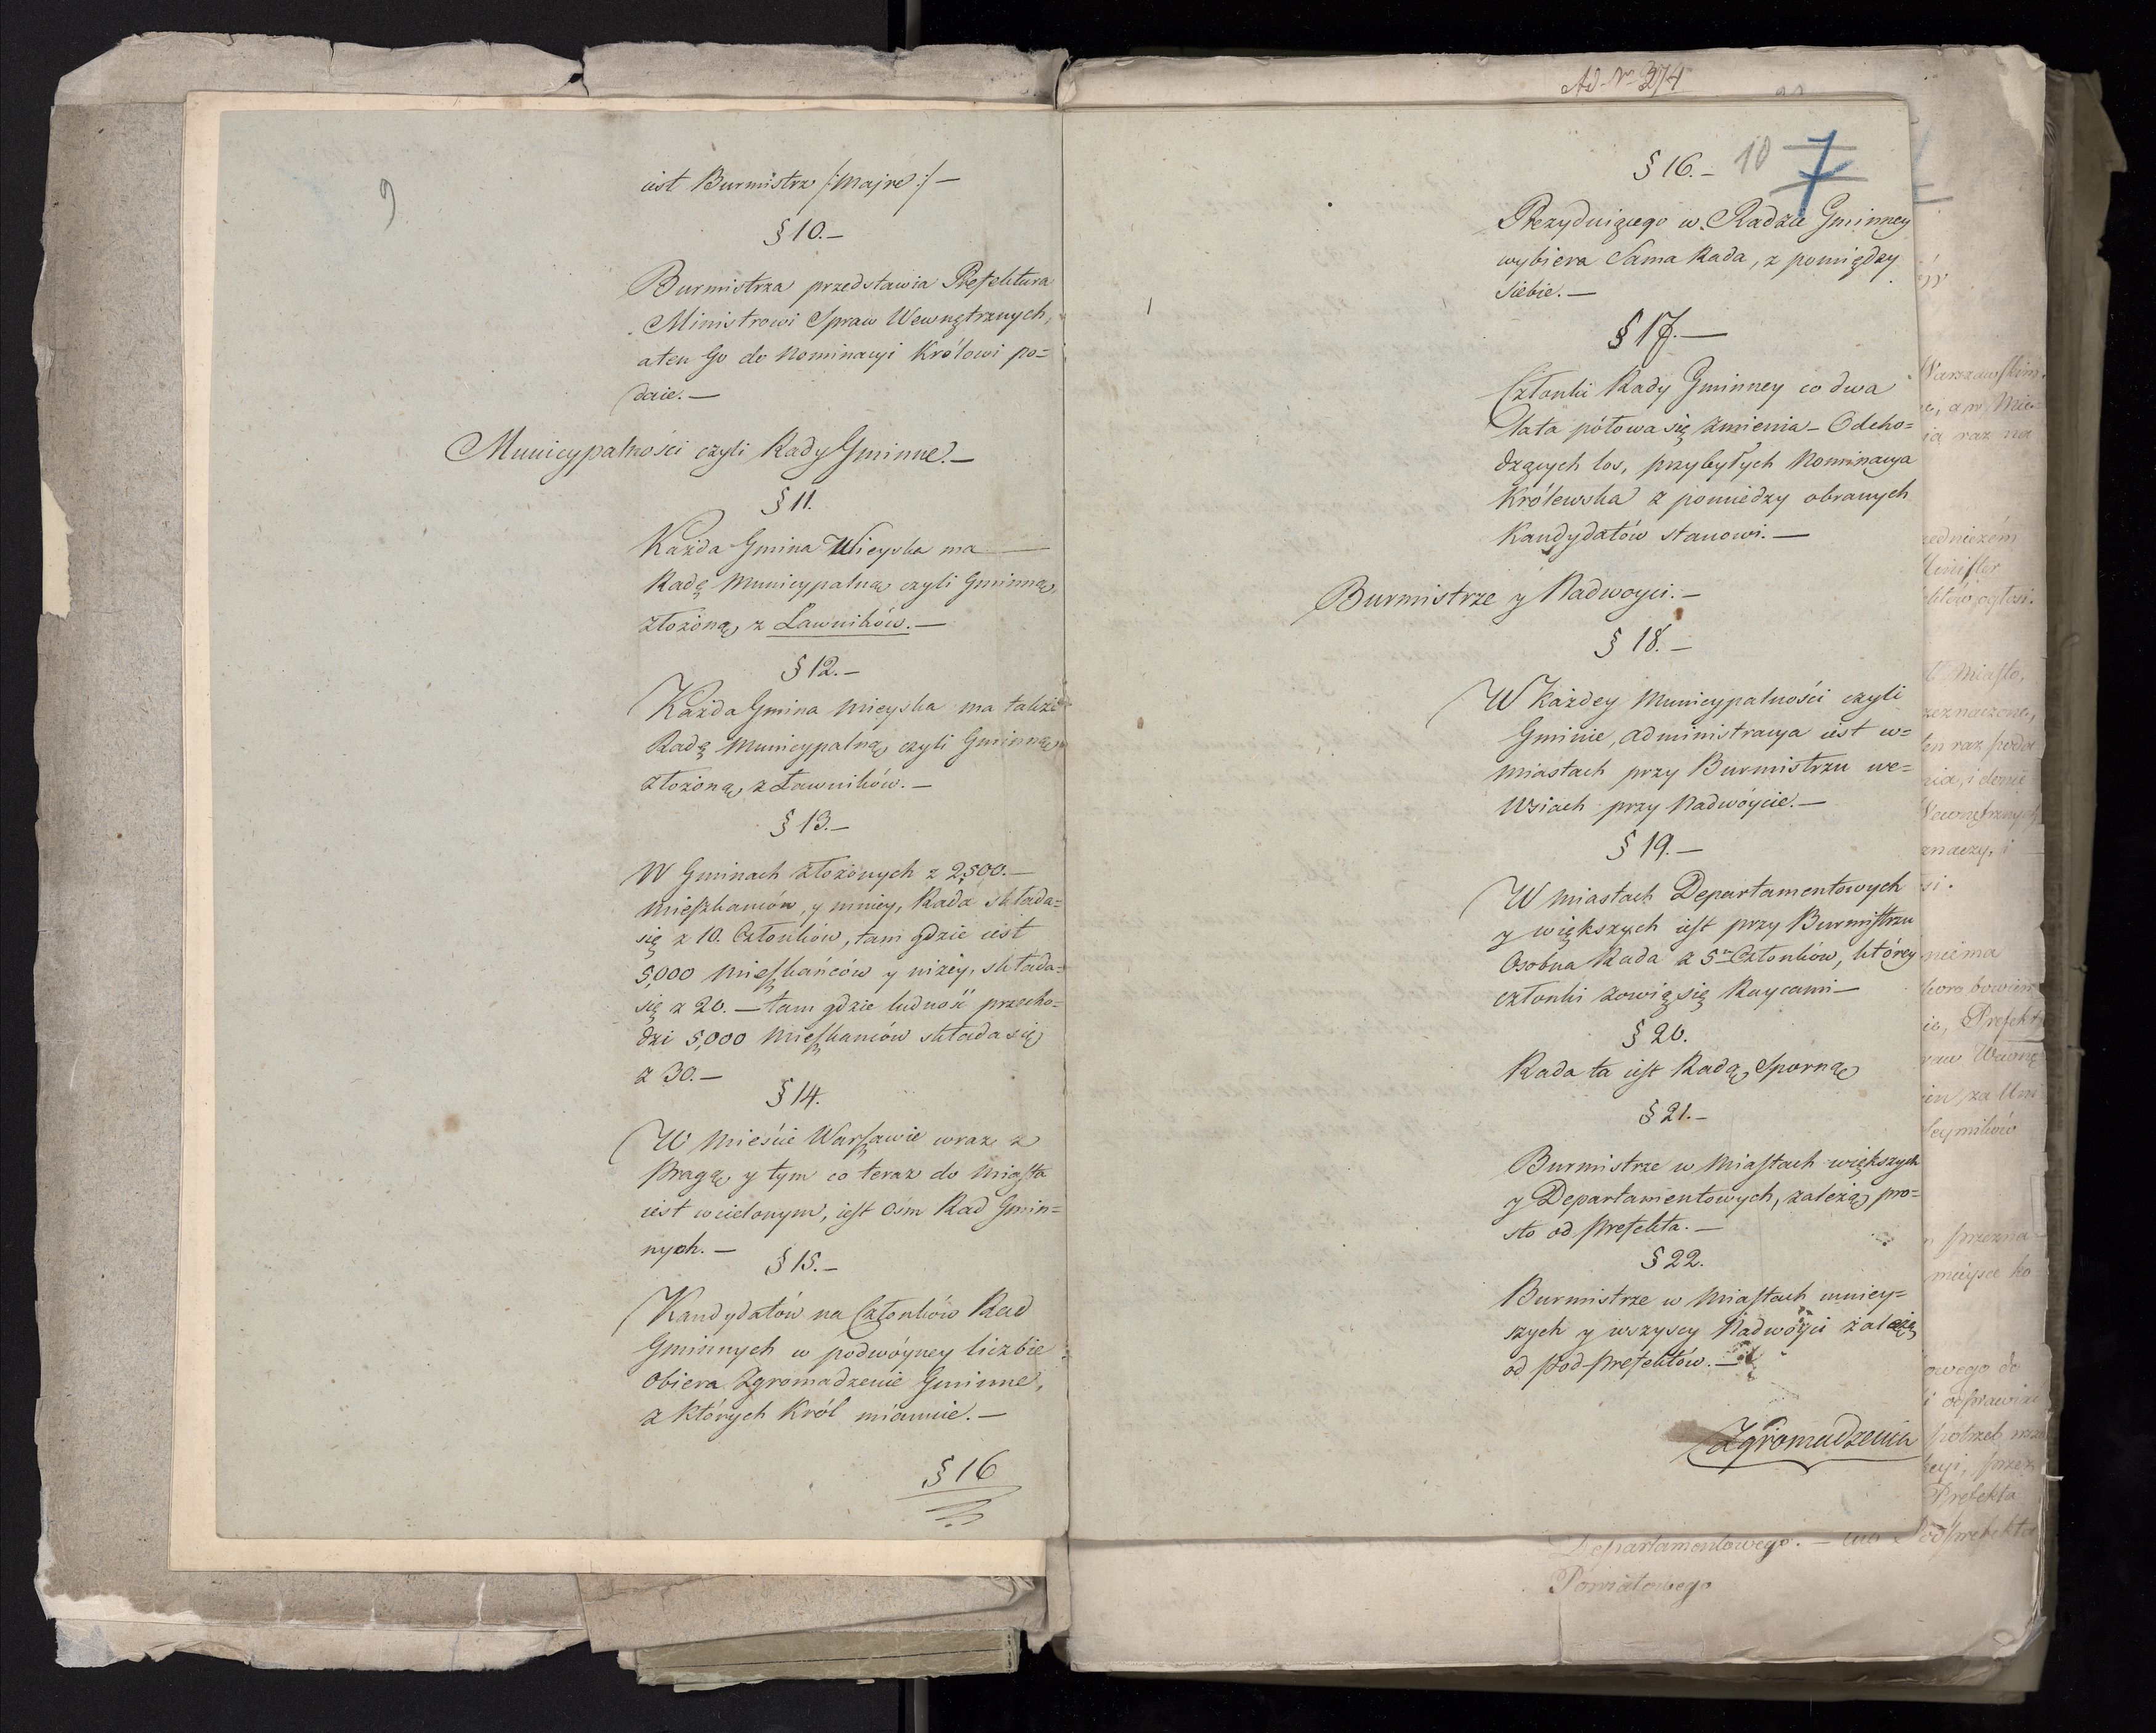 9
iest Burmistrz /:Majre:/ —
§ 10. —
Burmistrza przedstawia Prefektura
Ministrowi Spraw Wewnętrznych,
aten Go do Nominacyi Królowi po=
daie. —
Municypalności czyli Rady Gminne. —
§ 11.
Każda Gmina Wieyska ma —
Radę Municypalną czyli Gminną,
złożoną z Ławników. —
§ 12. —
Każda Gmina Mieyska ma także
Radę Municypalną, czyli Gminną,
złożoną z Ławników. —
§ 13. —
W Gminach złożonych z 2,500. —
Mieszkańców, y mniey, Rada składa=
się z 10. Członków, tam gdzie iest
5,000 Mieszkańców y niżey, składa=
się z 20. — tam gdzie ludność przecho=
dzi 5,000 Mieszkańców składa się
z 30. —
§ 14.
W Mieście Warszawie wraz z
Pragą, y tym co teraz do Miasta
iest wcielonym, iest Ośm Rad Gmin=
nych. —
§ 15. —
Kandydatów na Członków Rad
Gminnych w podwóyney liczbie
Obiera Zgromadzenie Gminne,
z których Król mianuie. —
§ 16
Ad Nr 374
10 7
§ 16. —
Prezyduiącego w Radzie Gminney
wybiera Sama Rada, z pomiędzy
Siebie. —
§ 17. —
Członki Rady Gminney co dwa
lata połowa się zmienia — Odcho=
dzących los, przybyłych Nominacya
Królewska z pomiedzy obranych
Kandydatów stanowi. —
Burmistrze y Nadwoyci. —
§ 18. —
W Każdey Municypalności czyli
Gminie, administracya iest w=
miastach przy Burmistrzu we=
Wsiach przy Nadwóycie. —
§ 19. —
W miastach Departamentowych
y większych iest przy Burmistrzu
Osobna Rada z 5ciu Członków, którey
członki zowią się Raycami —
§ 20.
Rada ta iest Radą, Sporną
§ 21. —
Burmistrze w Miastach większych
y Departamentowych, zależą pro=
sto od Prefekta. —
§ 22.
Burmistrze w Miastach mniey=
szych y wszyscy Nadwóyci zależą
od Pod-Prefektów. —
Zgromadzenia
Departamentowego. — lub Podprefekta
Powiatowego